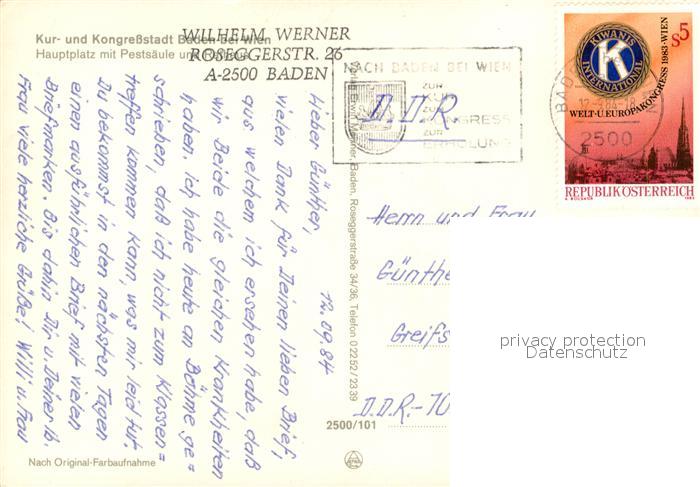 Kur- und Kongreßstadt Baden bei Wien
Hauptplatz mit Pestsäule und
WILHELM WERNER
ROSEGGERSTR. 26
A-2500 BADEN
12.09.84
Lieber Günther,
vielen Dank für Deinen lieben Brief,
aus welchem ich ersehen habe, daß
wir Beide die gleichen Krankheiten
haben. Ich habe heute an Böhme ge=
schrieben, daß ich nicht zum Klassen=
treffen kommen kann, was mir leid tut.
Du bekommst in den nächsten Tagen
einen ausführlichen Brief mit vielen
Briefmarken. Bis dahin Dir u. Deiner lb.
Frau viele herzliche Grüße! Willi u. Frau
Nach Original-Farbaufnahme
Menner, Baden, Roseggerstraße 34/36, Telefon 0 22 52 / 23 39
2500/101
NACH BADEN BEI WIEN
ZUR
KUR
ZUM
KONGRESS
ZUR
ERHOLUNG
D.D.R
BADEN
2500
KIWANIS
INTERNATIONAL
K
S5
1983-WIEN
WELT-U.EUROPAKONGRESS
REPUBLIK ÖSTERREICH
Herrn und Frau
Günthe
Greifs
D.D.R.-10
privacy protection
Datenschutz